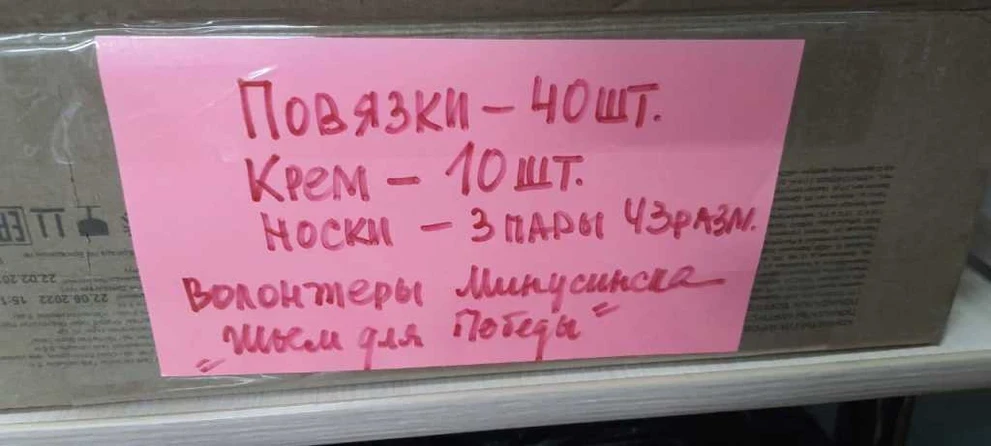 Повязки – 40 шт.
Крем – 10 шт.
Носки – 3 пары 43 разм.
Волонтеры Минусинска
"Шьем для Победы"